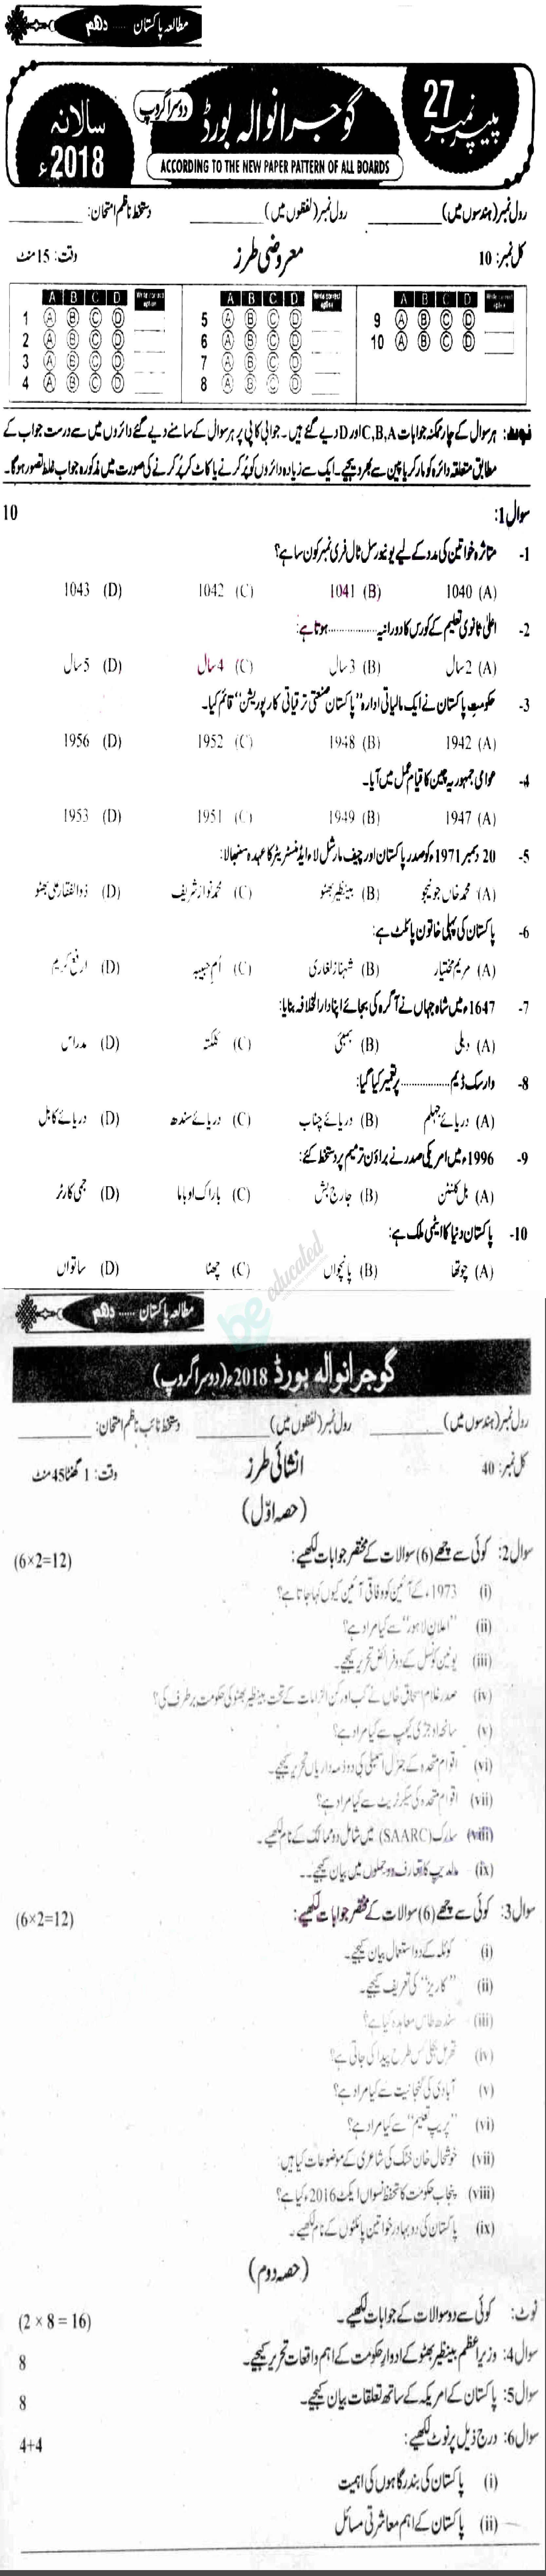 مطالعہ پاکستان ...... دہم
پیپر نمبر 27
گوجرانوالہ بورڈ
دوسرا گروپ
سالانہ 2018ء
ACCORDING TO THE NEW PAPER PATTERN OF ALL BOARDS
رول نمبر (ہندسوں میں) ________ رول نمبر (لفظوں میں) ________ دستخط ناظم امتحان: ________
کل نمبر: 10 معروضی طرز وقت: 15 منٹ
A B C D Write correct option A B C D Write correct option A B C D Write correct option
1 A B C D 5 A B C D 9 A B C D
2 A B C D 6 A B C D 10 A B C D
3 A B C D 7 A B C D
4 A B C D 8 A B C D
نوٹ: ہر سوال کے چار ممکنہ جوابات C,B,A اور D دیے گئے ہیں۔ جوابی کاپی پر ہر سوال کے سامنے دیے گئے دائروں میں سے درست جواب کے
مطابق متعلقہ دائرہ کو مارکر یا پین سے بھر دیجیے۔ ایک سے زیادہ دائروں کو پُر کرنے یا کاٹ کر پُر کرنے کی صورت میں مذکورہ جواب غلط تصور ہوگا۔
سوال 1: 10
1- متاثرہ خواتین کی مدد کے لیے یونیورسل ٹال فری نمبر کون سا ہے؟
(A) 1040 (B) 1041 (C) 1042 (D) 1043
2- اعلیٰ ثانوی تعلیم کے کورس کا دورانیہ ............ ہوتا ہے:
(A) 2 سال (B) 3 سال (C) 4 سال (D) 5 سال
3- حکومتِ پاکستان نے ایک مالیاتی ادارہ "پاکستان صنعتی ترقیاتی کارپوریشن" قائم کیا۔
(A) 1942 (B) 1948 (C) 1952 (D) 1956
4- عوامی جمہوریہ چین کا قیام عمل میں آیا۔
(A) 1947 (B) 1949 (C) 1951 (D) 1953
5- 20 دسمبر 1971ء کو صدر پاکستان اور چیف مارشل لاء ایڈمنسٹریٹر کا عہدہ سنبھالا:
(A) محمد خاں جونیجو (B) بینظیر بھٹو (C) محمد نواز شریف (D) ذوالفقار علی بھٹو
6- پاکستان کی پہلی خاتون پائلٹ ہے:
(A) مریم مختیار (B) شہناز لغاری (C) اُم حبیبہ (D) ارفع کریم
7- 1647ء میں شاہ جہاں نے آگرہ کی بجائے اپنا دارالخلافہ بنایا:
(A) دہلی (B) بمبئی (C) کلکتہ (D) مدراس
8- وارسک ڈیم ............ پر تعمیر کیا گیا:
(A) دریائے جہلم (B) دریائے چناب (C) دریائے سندھ (D) دریائے کابل
9- 1996ء میں امریکی صدر نے براؤن ترمیم پر دستخط کئے:
(A) بل کلنٹن (B) جارج بش (C) باراک اوباما (D) جمی کارٹر
10- پاکستان دنیا کا ایٹمی ملک ہے:
(A) چوتھا (B) پانچواں (C) چھٹا (D) ساتواں
be educated
مطالعہ پاکستان ...... دہم
گوجرانوالہ بورڈ 2018ء (دوسرا گروپ)
رول نمبر (ہندسوں میں) ________ رول نمبر (لفظوں میں) ________ دستخط نائب ناظم امتحان: ________
کل نمبر: 40 انشائی طرز وقت: 1 گھنٹا 45 منٹ
(حصہ اوّل)
سوال 2: کوئی سے چھے (6) سوالات کے مختصر جوابات لکھیے: (6×2=12)
(i) 1973ء کے آئین کو وفاقی آئین کیوں کہا جاتا ہے؟
(ii) "اعلانِ لاہور" سے کیا مراد ہے؟
(iii) یونین کونسل کے دو فرائض تحریر کیجیے۔
(iv) صدر غلام اسحاق خاں نے کب اور کن الزامات کے تحت بینظیر بھٹو کی حکومت برطرف کی؟
(v) سانحہ اوجڑی کیمپ سے کیا مراد ہے؟
(vi) اقوام متحدہ کے جنرل اسمبلی کی دو ذمہ داریاں تحریر کیجیے۔
(vii) اقوام متحدہ کی سیکرٹریٹ سے کیا مراد ہے؟
(viii) سارک (SAARC) میں شامل دو ممالک کے نام لکھیے۔
(ix) مالدیپ کا تعارف دو جملوں میں بیان کیجیے۔۔
سوال 3: کوئی سے چھے (6) سوالات کے مختصر جوابات لکھیے: (6×2=12)
(i) کوئلہ کے دو استعمال بیان کیجیے۔
(ii) "کاریز" کی تعریف کیجیے۔
(iii) سندھ طاس معاہدہ کیا ہے؟
(iv) تھرمل بجلی کس طرح پیدا کی جاتی ہے؟
(v) آبادی کی گنجانیت سے کیا مراد ہے؟
(vi) "پریپ تعلیم" سے کیا مراد ہے؟
(vii) خوشحال خان خٹک کی شاعری کے موضوعات کیا ہیں:
(viii) پنجاب حکومت کا تحفظ نسواں ایکٹ 2016ء کیا ہے؟
(ix) پاکستان کی دو بہادر خواتین پائلٹوں کے نام لکھیے۔
(حصہ دوم)
نوٹ: کوئی سے دو سوالات کے جوابات لکھیے۔ (2 × 8 = 16)
سوال 4: وزیراعظم بینظیر بھٹو کے ادوارِ حکومت کے اہم واقعات تحریر کیجیے۔ 8
سوال 5: پاکستان کے امریکہ کے ساتھ تعلقات بیان کیجیے۔ 8
سوال 6: درج ذیل پر نوٹ لکھیے: 4+4
(i) پاکستان کی بندرگاہوں کی اہمیت
(ii) پاکستان کے اہم معاشرتی مسائل